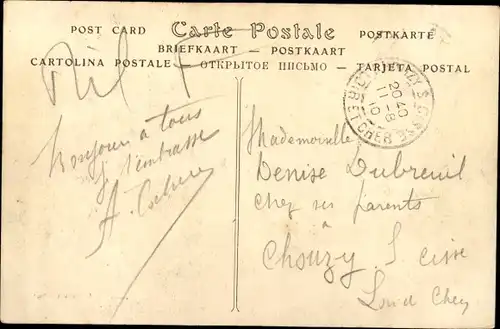 POST CARD Carte Postale POSTKARTE
BRIEFKAART — POSTKAART
CARTOLINA POSTALE — ОТКРЫТОЕ ПИСЬМО — TARJETA POSTAL
Bonjour à tous
J t'embrasse
A.
20 40
11 - 8
10
Mademoiselle
Denise Dubreuil
chez ses parents
à
Chouzy S. Cisse
Loir et Cher